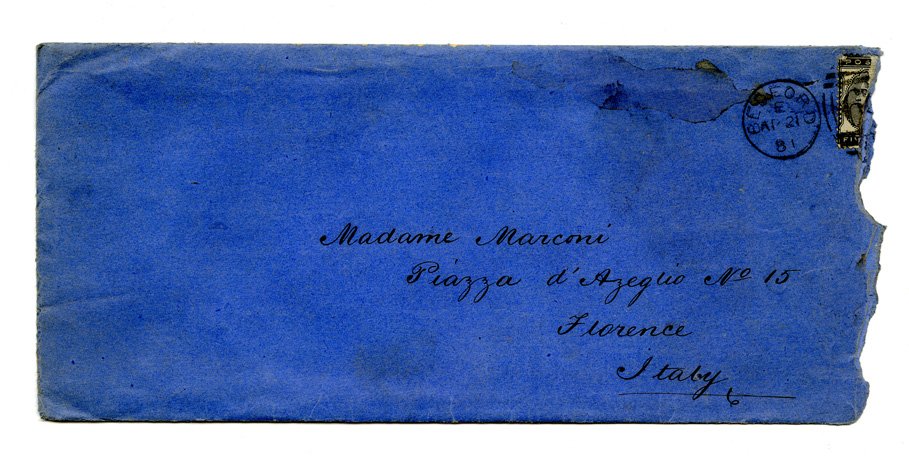 BEDFORD
E
AP 21
81
Madame Marconi
Piazza d'Azeglio Nº 15
Florence
Italy